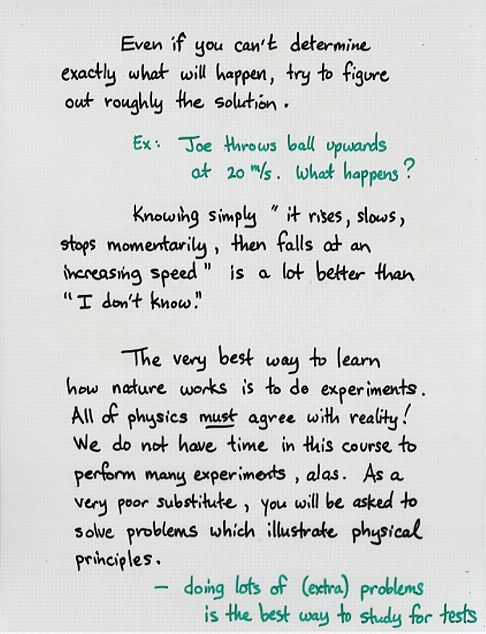 Even if you can't determine
exactly what will happen, try to figure
out roughly the solution.
Ex: Joe throws ball upwards
at 20 m/s. What happens?
Knowing simply "it rises, slows,
stops momentarily, then falls at an
increasing speed" is a lot better than
"I don't know."
The very best way to learn
how nature works is to do experiments.
All of physics must agree with reality!
We do not have time in this course to
perform many experiments, alas. As a
very poor substitute, you will be asked to
solve problems which illustrate physical
principles.
– doing lots of (extra) problems
is the best way to study for tests